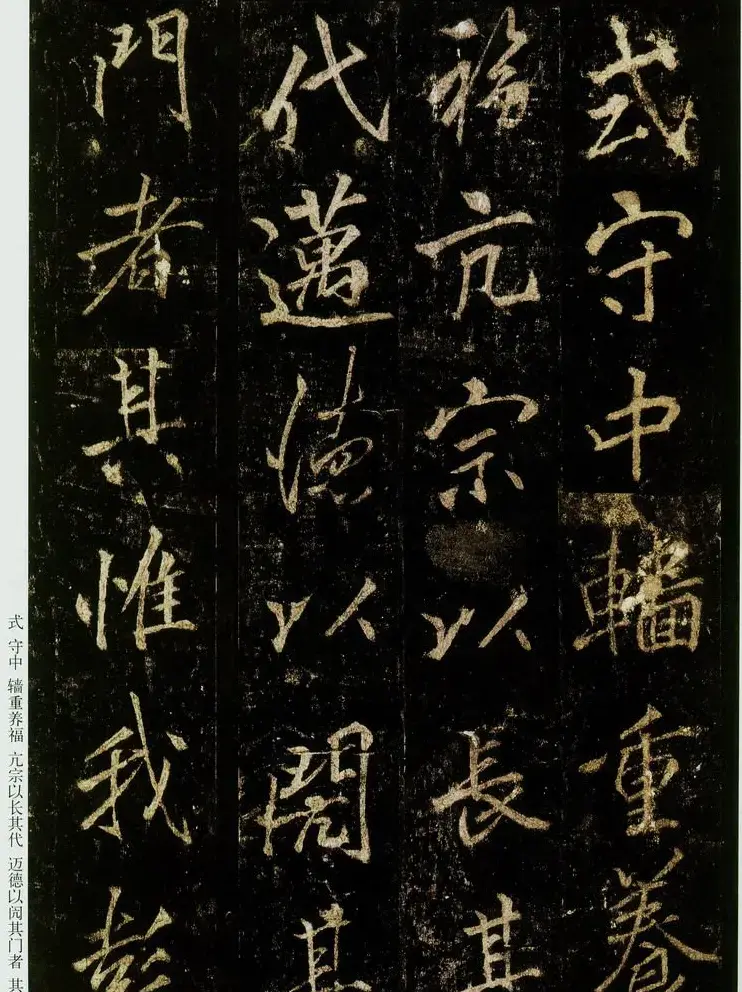 式守中轖重養
福亢宗以長其
代邁德以閌其
門者其惟我彭
式 守中 轖重养福 亢宗以长其代 迈德以闶其门者 其